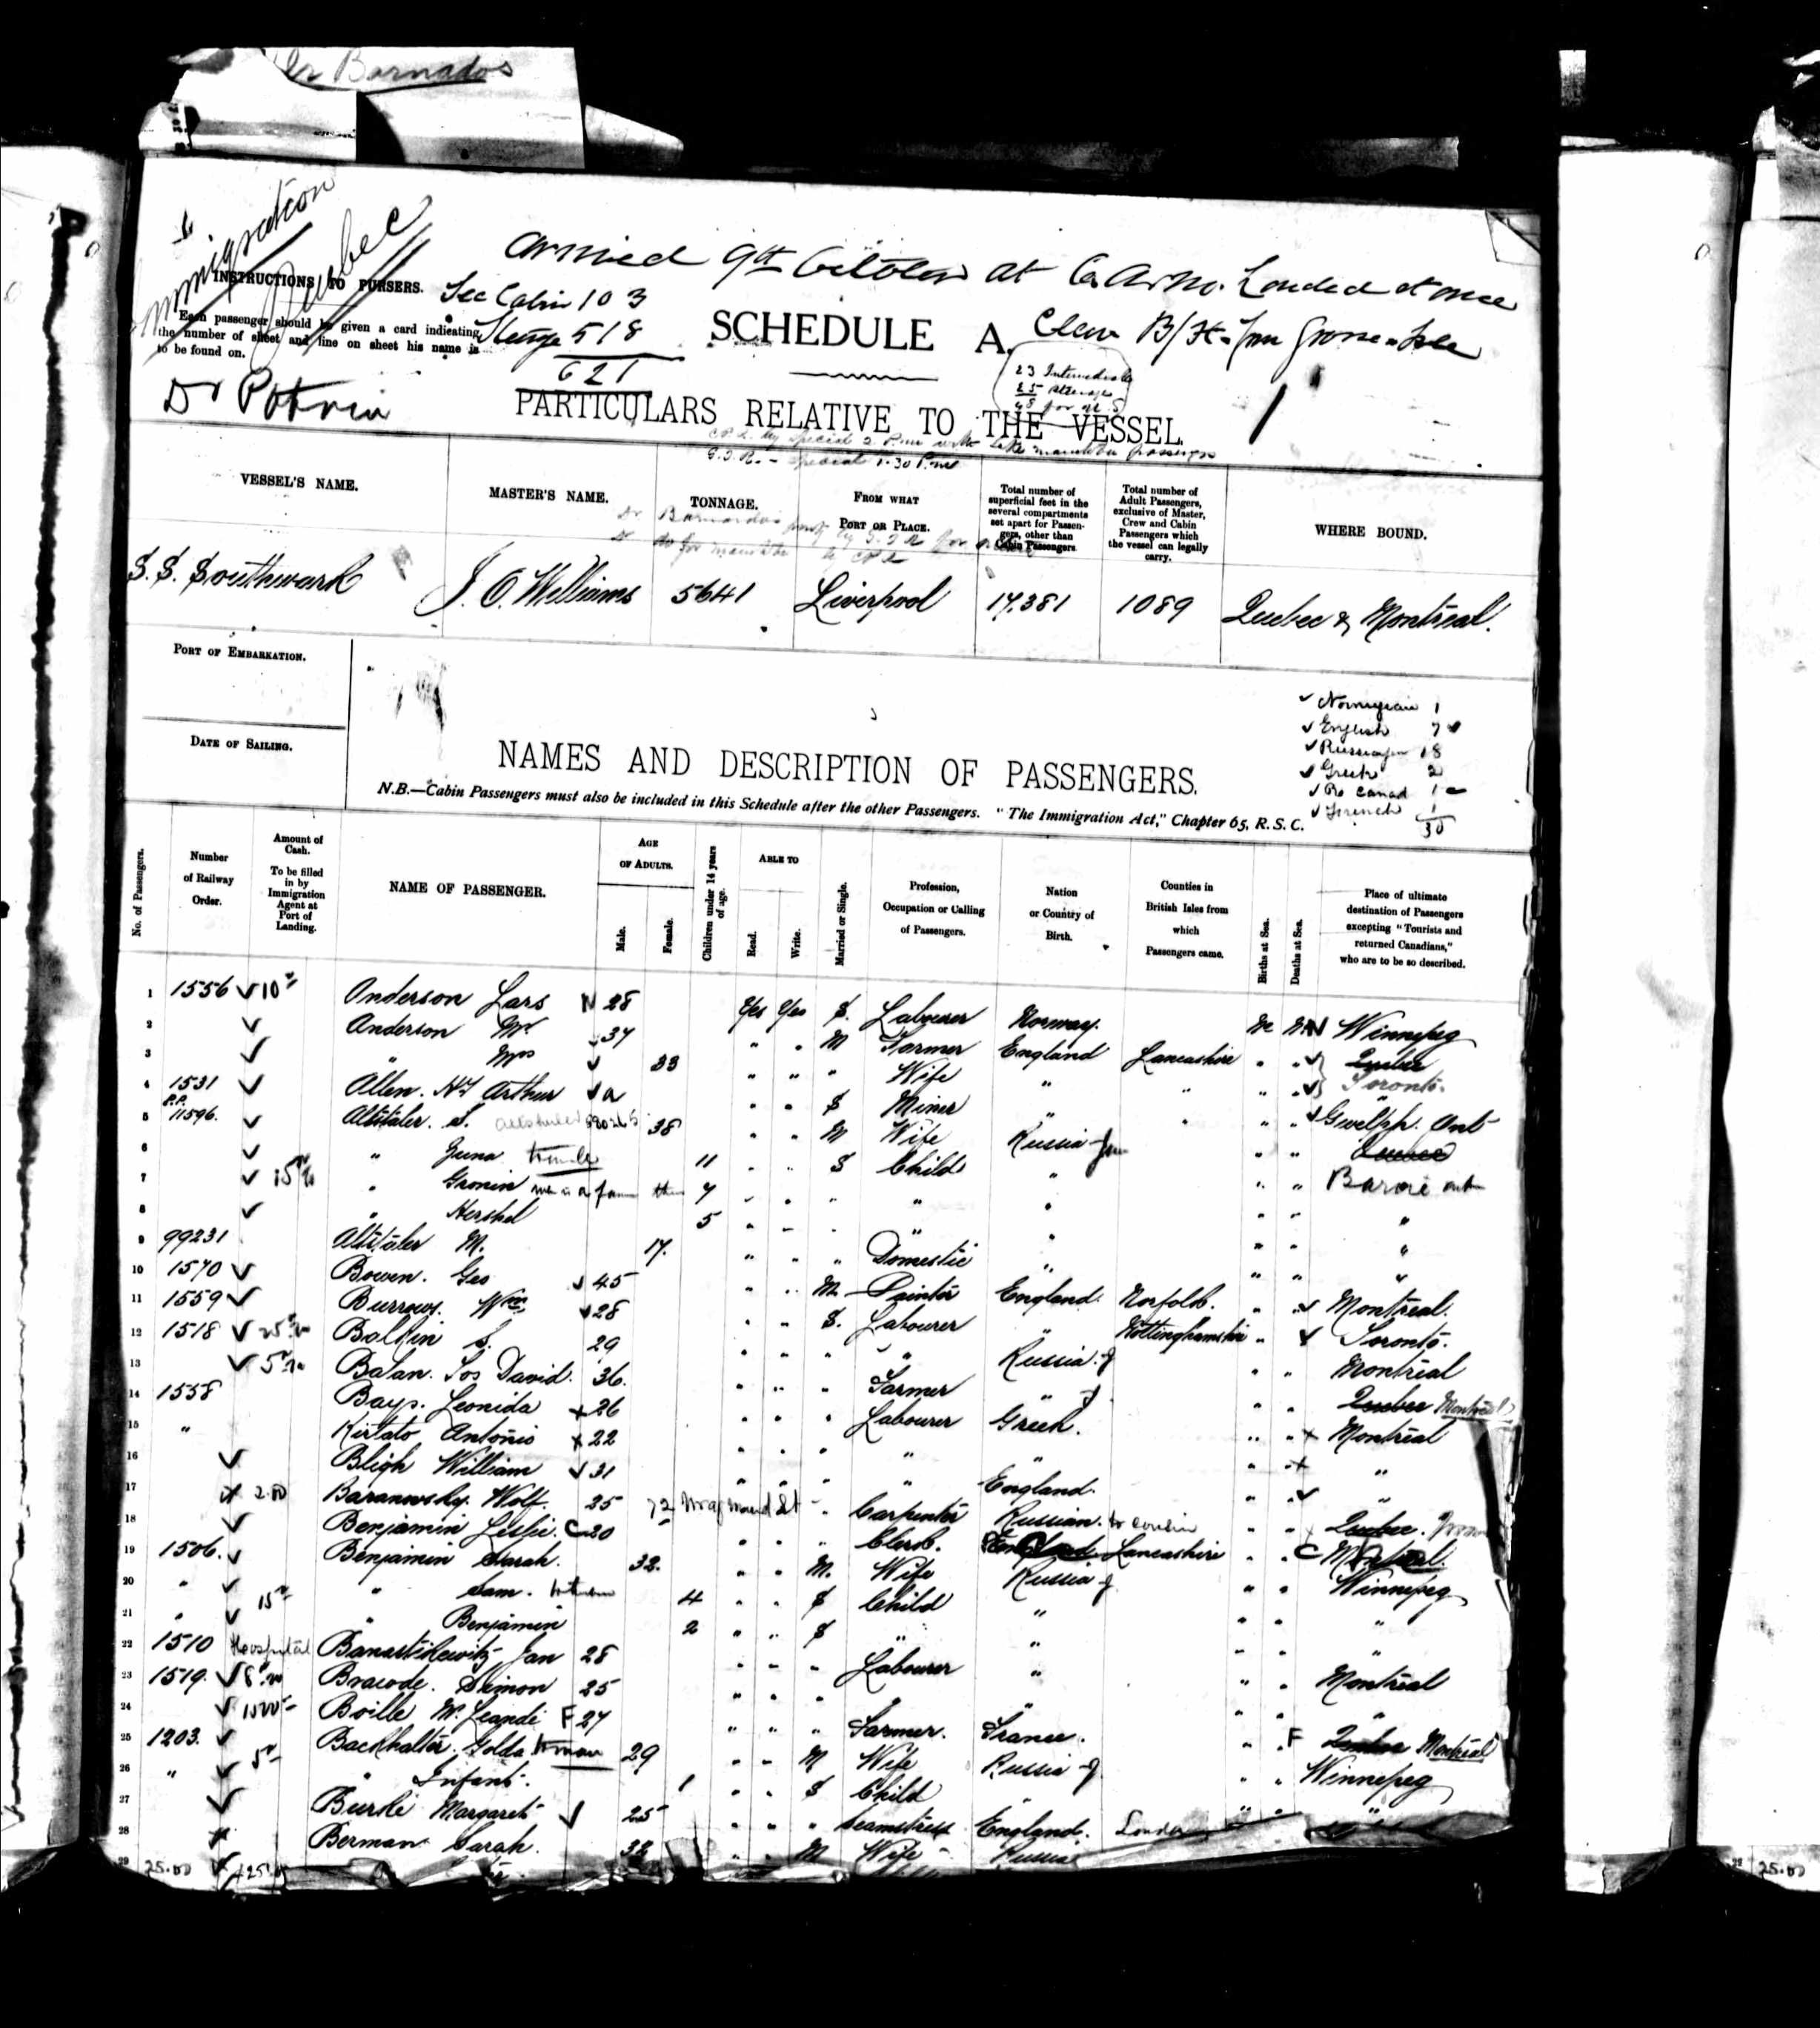 Dr Barnados
Immigration
Quebec
arrived 9th October at 6 a.m. Landed at once
INSTRUCTIONS TO PURSERS.
Sec Cabin 103
Each passenger should be given a card indicating
the number of sheet and line on sheet his name is
to be found on.
Steerge 518
621
SCHEDULE A.
Clean B/H. from Grosse-Isle
23 Intermediate
25 Steerage
48 for U.S
Dr Potvin
1
PARTICULARS RELATIVE TO THE VESSEL.
C.P.R. by special 2 P.m with Lake Manitoba passengers
G.T.R. - Special 1.30 P.m
VESSEL'S NAME. MASTER'S NAME. TONNAGE. FROM WHAT PORT OR PLACE. Total number of superficial feet in the several compartments set apart for Passengers, other than Cabin Passengers. Total number of Adult Passengers, exclusive of Master, Crew and Cabin Passengers which the vessel can legally carry. WHERE BOUND.
Dr Barnardos party by G.T.R for
do for Manitoba by CPR
S.S. Southwark J. O. Williams 5641 Liverpool 17,381 1089 Quebec & Montreal.
PORT OF EMBARKATION.
DATE OF SAILING.
Norwegian 1
English 7
Russian 18
Greek 2
Re Canad 1
French 1
30
NAMES AND DESCRIPTION OF PASSENGERS.
N.B.—Cabin Passengers must also be included in this Schedule after the other Passengers. "The Immigration Act," Chapter 65, R.S.C.
No. of Passengers. Number of Railway Order. Amount of Cash. To be filled in by Immigration Agent at Port of Landing. NAME OF PASSENGER. AGE OF ADULTS. Male. Female. Children under 14 years of age. ABLE TO Read. Write. Married or Single. Profession, Occupation or Calling of Passengers. Nation or Country of Birth. Counties in British Isles from which Passengers came. Births at Sea. Deaths at Sea. Place of ultimate destination of Passengers excepting "Tourists and returned Canadians," who are to be so described.
1 1556 10 Anderson Lars N 28 Yes Yes S. Labourer Norway. No No Winnipeg
2 Anderson Mr 34 " " M Farmer England Lancashire " " Quebec
3 " Mrs 33 " " " Wife " " " " Toronto.
4 1531 Allen. Hy Arthur a " " S Miner " " " " Guelph. Ont
5 P.P. 11596. Altitaler. S. 38 " " M Wife Russia " " Quebec
6 " Zuna 11 " " S Child " " " Barrie ont
7 15 " Gronin 7 " " " " " " " "
8 " Hershel 5 " " " " " " " "
9 99231 Altitaler M. 17. " " " Domestic " " " "
10 1570 Bowen. Geo 45 " " M Painter England. Norfolk. " " Montreal.
11 1559 Burrows. Wm. 28 " " S. Labourer " Nottinghamshire " " Toronto.
12 1518 25 Balkin S. 29 " " " " Russia. " " Montreal
13 5 Balan. Jos David. 36. " " " Farmer " " " Quebec Montreal
14 1558 Bays. Leonida x 26 " " " Labourer Greek. " " Montreal
15 " Kirtato Antonio x 22 " " " " " " " "
16 Bligh William 31 " " " " England. " " "
17 x 2.50 Baranowsky. Wolf. 25 72 St Carpenter Russian. to cousin " " Quebec.
18 Benjamin Leslie. C 20 " " " Clerk. England Lancashire " " C Montreal.
19 1506. Benjamin Sarah. 32. " " M. Wife Russia " " Winnipeg
20 " " Sam. 4 " " S Child " " " "
21 " 15 " Benjamin 2 " " S " " " " "
22 1510 Hospital Banastilewitz Jan 28 " " " Labourer " " " Montreal
23 1519. 8 Bracode. Simon 25 " " " " " " " "
24 Boille Mr. Leandé F 27 " " " Farmer. France. " " F Quebec Montreal
25 1203. Backhalter. Golda 29 " " M Wife Russia " " Winnipeg
26 " 5 " Infant. 1 " " S Child " " " "
27 Burke Margaret 25 " " " Seamstress England. London
28 Berman Sarah. 32 " " M Wife Russia
29 25.00
25.00